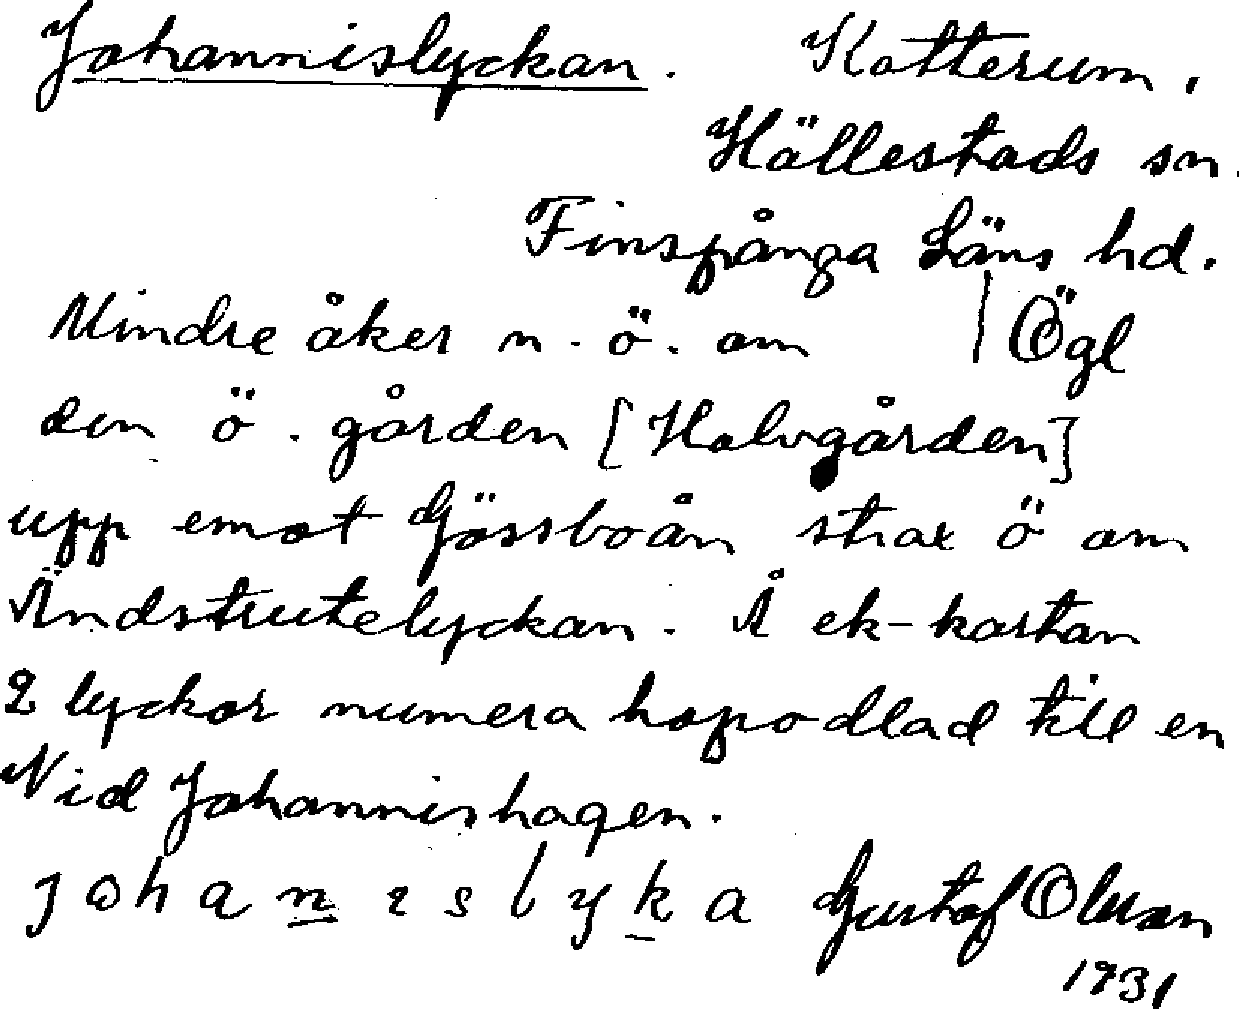 Johannislyckan. Kotterum,
Hällestads sn.
Finspånga Läns hd.
Mindre åker n. ö. om | Ögl
den ö. gården [Halvgården]
upp emot Gössboån strax ö om
Ändstrutelyckan. Å ek-kartan
2 lyckor numera hopodlad till en
Vid Johannishagen.
johanislyka Gustaf Olsson
1931